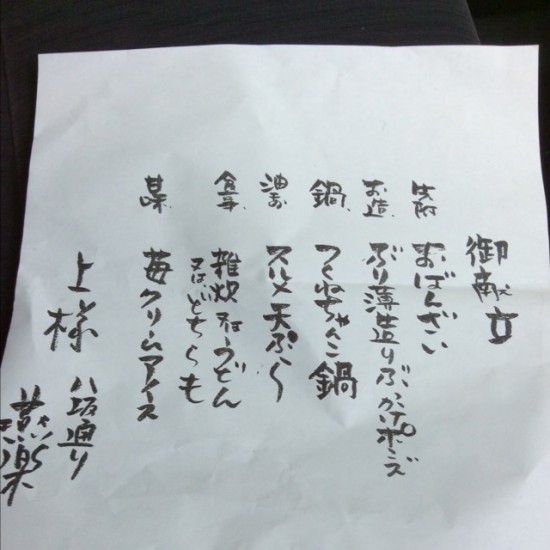 御献立
先附 おばんざい
お造 ぶり薄造りぶっかけポンズ
鍋 つくねちゃんこ鍋
油物 スルメ天ぷら
食事 雑炊又はうどん
又はどちらも
甘味 苺クリームアイス
上様
八坂通り
燕楽